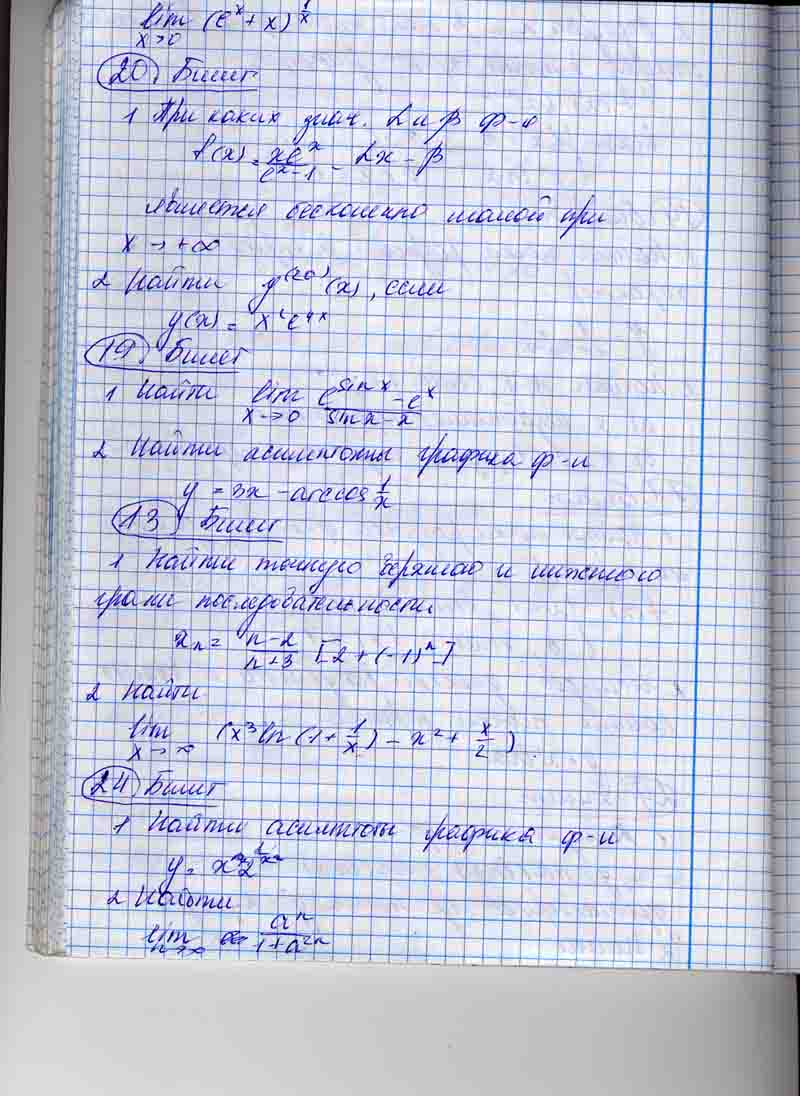 lim (e^x + x)^{1/x}
x→0
20 Билет
1 При каких знач. α и β ф-я
f(x) = xe^x/(e^x-1) - αx - β
является бесконечно малой при
x → +∞
2 Найти y^(20)(x), если
y(x) = x²e^{4x}
19 Билет
1 Найти lim (e^{sin x} - e^x)/(sin x - x)
x→0
2 Найти асимптоты графика ф-и
y = 3x - arccos 1/x
13 Билет
1 Найти точную верхнюю и нижнюю
грани последовательности
x_n = (n-2)/(n+3) [2 + (-1)^n]
2 Найти
lim (x³ ln(1 + 1/x) - x² + x/2)
x→∞
24 Билет
1 Найти асимптоты графика ф-и
2 Найти
lim a^n/(1+a^{2n})
n→∞